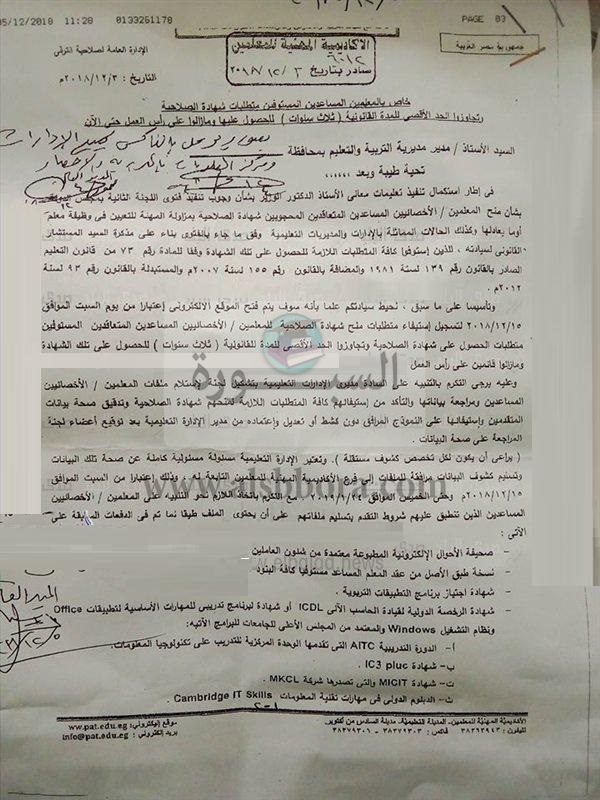 05/12/2018 11:28 0133261178 PAGE 03
جمهورية مصر العربية
الأكاديمية المهنية للمعلمين
صادر بتاريخ ٢٠١٨/١٢/٣
الإدارة العامة لصلاحية الترقى
التاريخ : ٢٠١٨/١٢/٣م
خاص بالمعلمين المساعدين المستوفين متطلبات شهادة الصلاحية
وتجاوزوا الحد الأقصى للمدة القانونية ( ثلاث سنوات ) للحصول عليها ومازالوا على رأس العمل حتى الآن
السيد الأستاذ / مدير مديرية التربية والتعليم بمحافظة
تحية طيبة وبعد ،،،،،
فى إطار استكمال تنفيذ تعليمات معالى الأستاذ الدكتور الوزير بشأن وجوب تنفيذ فتوى اللجنة الثانية بمجلس
بشأن منح المعلمين / الأخصائيين المساعدين المتعاقدين المحجوبين شهادة الصلاحية بمزاولة المهنة للتعيين فى وظيفة معلم
أوما يعادلها وكذلك الحالات المماثلة بالإدارات والمديريات التعليمية وفق ما جاء بالفتوى بناء على مذكرة السيد المستشار
القانونى لسيادته ، للذين إستوفوا كافة المتطلبات اللازمة للحصول على تلك الشهادة وفقا للمادة رقم ٧٣ من قانون التعليم
الصادر بالقانون رقم ١٣٩ لسنة ١٩٨١ والمضافة بالقانون رقم ١٥٥ لسنة ٢٠٠٧م والمستبدلة بالقانون رقم ٩٣ لسنة
٢٠١٢م .
وتأسيسا على ما سبق ، نحيط سيادتكم علما بأنه سوف يتم فتح الموقع الالكترونى إعتبارا من يوم السبت الموافق
٢٠١٨/١٢/١٥ لتسجيل إستيفاء متطلبات منح شهادة الصلاحية للمعلمين / الأخصائيين المساعدين المتعاقدين المستوفين
متطلبات الحصول على شهادة الصلاحية وتجاوزوا الحد الأقصى للمدة القانونية ( ثلاث سنوات ) للحصول على تلك الشهادة
ومازالوا قائمين على رأس العمل
وعليه يرجى التكرم بالتنبيه على السادة مديرى الإدارات التعليمية بتشكيل لجنة لإستلام ملفات المعلمين / الأخصائيين
المساعدين ومراجعة بياناتها والتأكد من إستيفائهم كافة المتطلبات اللازمة لمنحهم شهادة الصلاحية وتدقيق صحة بيانات
المتقدمين وإستيفائها على النموذج المرافق دون كشط أو تعديل وإعتماده من مدير الإدارة التعليمية بعد توقيع أعضاء لجنة
المراجعة على صحة البيانات .
( يراعى أن يكون لكل تخصص كشوف مستقلة ). وتعتبر الإدارة التعليمية مسئولة مسئولية كاملة عن صحة تلك البيانات
وتسليم كشوف البيانات مرافقة للملفات إلى فرع الأكاديمية المهنية للمعلمين التابعة له ، وذلك إعتبارا من السبت الموافق
٢٠١٨/١٢/١٥م وحتى الخميس الموافق ٢٠١٩/١/٢٤ مع التكرم باتخاذ اللازم نحو التنبيه على المعلمين / الأخصائيين
المساعدين الذين تنطبق عليهم شروط التقدم بتسليم ملفاتهم على أن يحتوى الملف طبقا لما تم فى الدفعات السابقة على
الآتى :
- صحيفة الأحوال الإلكترونية المطبوعة معتمدة من شئون العاملين
- نسخة طبق الأصل من عقد المعلم المساعد مستوفيا كافة البنود
- شهادة اجتياز برنامج التطبيقات التربوية .
- شهادة الرخصة الدولية لقيادة الحاسب الآلى ICDL أو شهادة لبرنامج تدريبى للمهارات الأساسية لتطبيقات Office
ونظام التشغيل Windows والمعتمد من المجلس الأعلى للجامعات للبرامج الآتية:
أ- الدورة التدريبية AITC التى تقدمها الوحدة المركزية للتدريب على تكنولوجيا المعلومات.
ب- شهادة IC3 pluc
ت- شهادة MICIT والتى تصدرها شركة MKCL
ث- الدبلوم الدولى فى مهارات تقنية المعلومات Cambridge IT Skills
الأكاديمية المهنية للمعلمين- المدينة التعليمية- مدينة السادس من أكتوبر.
تليفون : ٣٨٣٦٣٩٤٣ فاكس : ٣٨٣٧٩٣٠٣ - ٣٨٣٧٩٣٠١
موقع إليكترونى: www.pat.edu.eg
بريد إليكترونى: info@pat.edu.eg
السبورة
www.alshbura.com